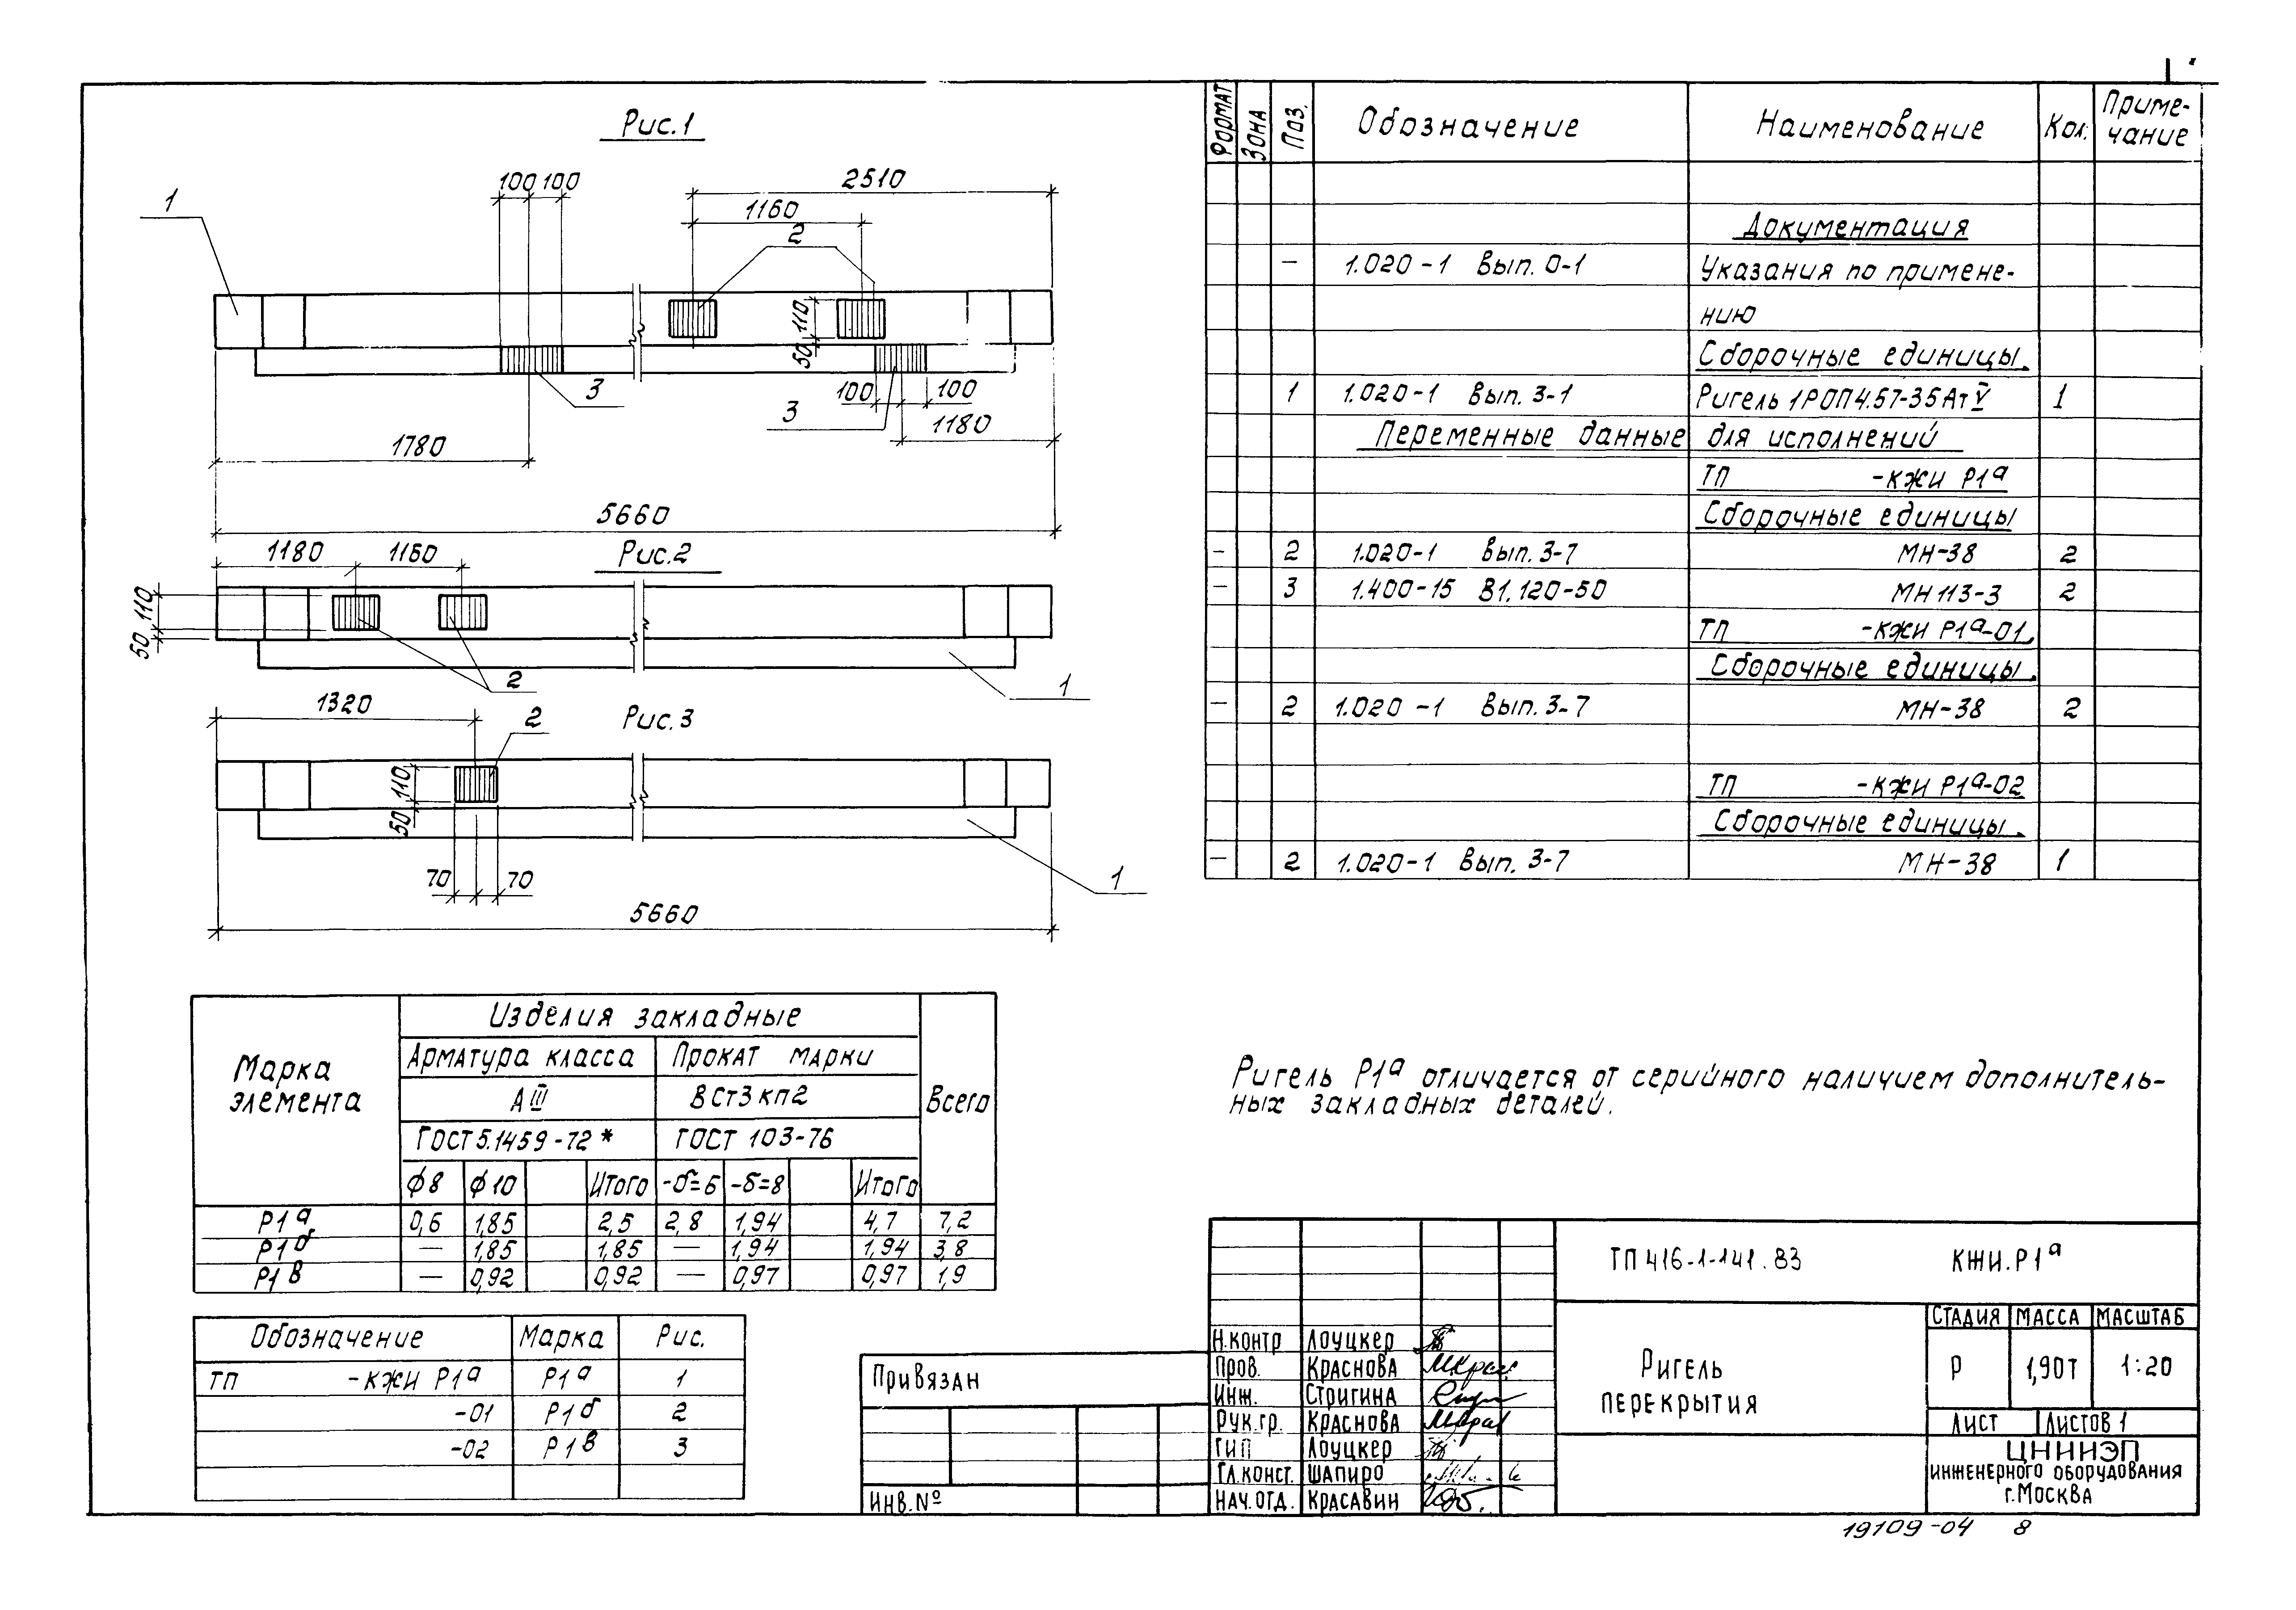 Рис.1
100 100
2510
1160
1
2
110
50
3
3
100
100
1180
1780
5660
1180
1160
Рис.2
110
50
2
1
1320
2
Рис.3
110
50
70
70
1
5660
Формат Зона Поз. Обозначение Наименование Кол. Приме-
чание
Документация
— 1.020-1 Вып. 0-1 Указания по примене-
нию
Сборочные единицы.
1 1.020-1 Вып. 3-1 Ригель 1РОП4.57-35АтV 1
Переменные данные для исполнений
ТП -КЖИ Р1а
Сборочные единицы
— 2 1.020-1 Вып. 3-7 МН-38 2
— 3 1.400-15 В1.120-50 МН113-3 2
ТП -КЖИ Р1а-01
Сборочные единицы.
— 2 1.020-1 Вып. 3-7 МН-38 2
ТП -КЖИ Р1а-02
Сборочные единицы.
— 2 1.020-1 Вып. 3-7 МН-38 1
Марка
элемента
Изделия закладные
Всего
Арматура класса Прокат марки
АIII ВСт3кп2
ГОСТ5.1459-72* ГОСТ 103-76
ф8 ф10 Итого -δ=6 -δ=8 Итого
Р1а 0,6 1,85 2,5 2,8 1,94 4,7 7,2
Р1б — 1,85 1,85 — 1,94 1,94 3,8
Р1в — 0,92 0,92 — 0,97 0,97 1,9
Обозначение Марка Рис.
ТП -КЖИ Р1а Р1а 1
-01 Р1б 2
-02 Р1в 3
Ригель Р1а отличается от серийного наличием дополнитель-
ных закладных деталей.
Привязан
Инв.№
Н.контр Лоуцкер
Пров. Краснова
Инж. Стригина
Рук.гр. Краснова
ГИП Лоуцкер
Гл.конст. Шапиро
Нач.отд. Красавин
ТП 416-1-141.83 КЖИ.Р1а
Ригель
перекрытия
Стадия Масса Масштаб
Р 1,90т 1:20
Лист Листов 1
ЦНИИЭП
инженерного оборудования
г.Москва
19109-04 8